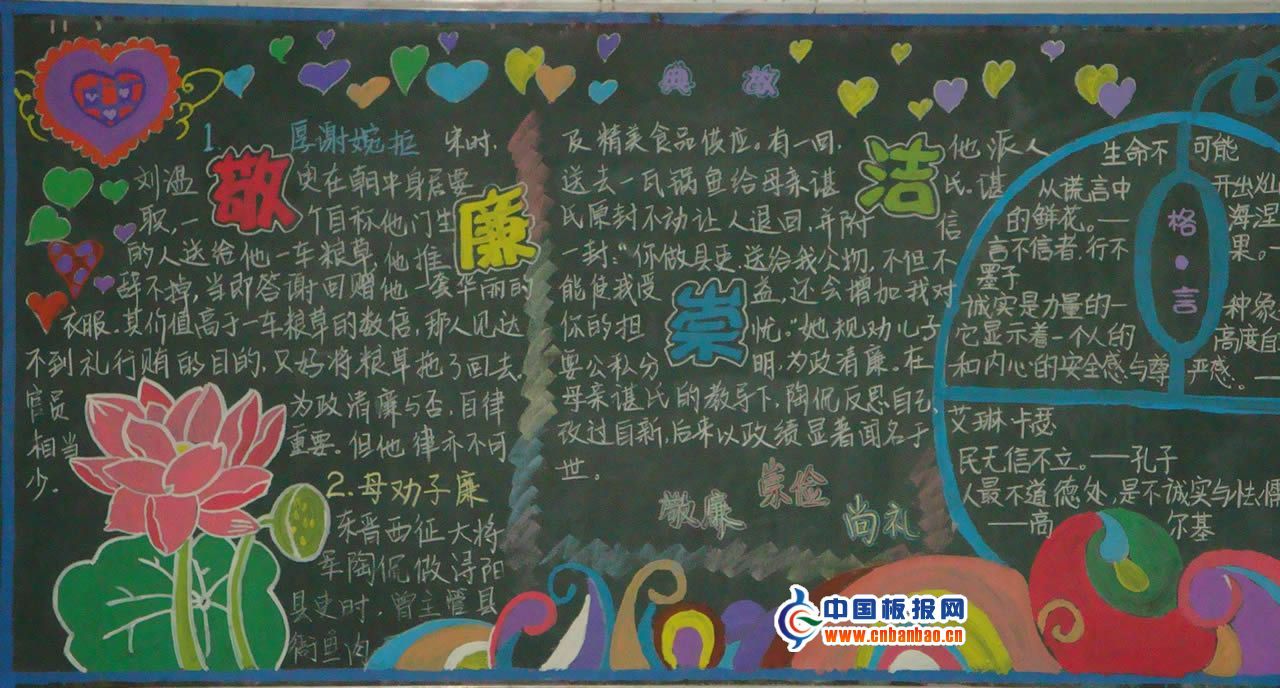 典故
敬
廉
崇
洁
1.
厚谢婉拒
宋时,
刘温叟在朝中身居要
职,一个自称他门生
的人送给他一车粮草,他推
辞不掉,当即答谢回赠他一套华丽的
衣服。其价值高于一车粮草的数倍,那人见达
不到礼行贿的目的,又好将粮草拖了回去.
官员为政清廉与否,自律
相当重要。但他律亦不可
少.
2.母劝子廉
东晋西征大将
军陶侃做浔阳
县吏时,曾主管县
衙鱼肉
及精美食品供应。有一回,他派人
送去一瓦锅鱼给母亲谌氏.谌
氏原封不动让人退回,并附信
一封:“你做县吏.送给我公物,不但不
能使我受益,还会增加我对
你的担忧。”她规劝儿子
要公私分明,为政清廉。在
母亲谌氏的教导下,陶侃反思自己、
改过自新,后来以政绩显著闻名于
世。
敬廉
崇俭
尚礼
格·言
生命不可能
从谎言中开出灿
的鲜花。—海涅
言不信者.行不果。—
墨子
诚实是力量的一种象
它显示着一个人的高度自
和内心的安全感与尊严感。—
艾琳卡瑟
民无信不立。—孔子
人最不道德处,是不诚实与怯懦
—高尔基
中国板报网
www.cnbanbao.cn